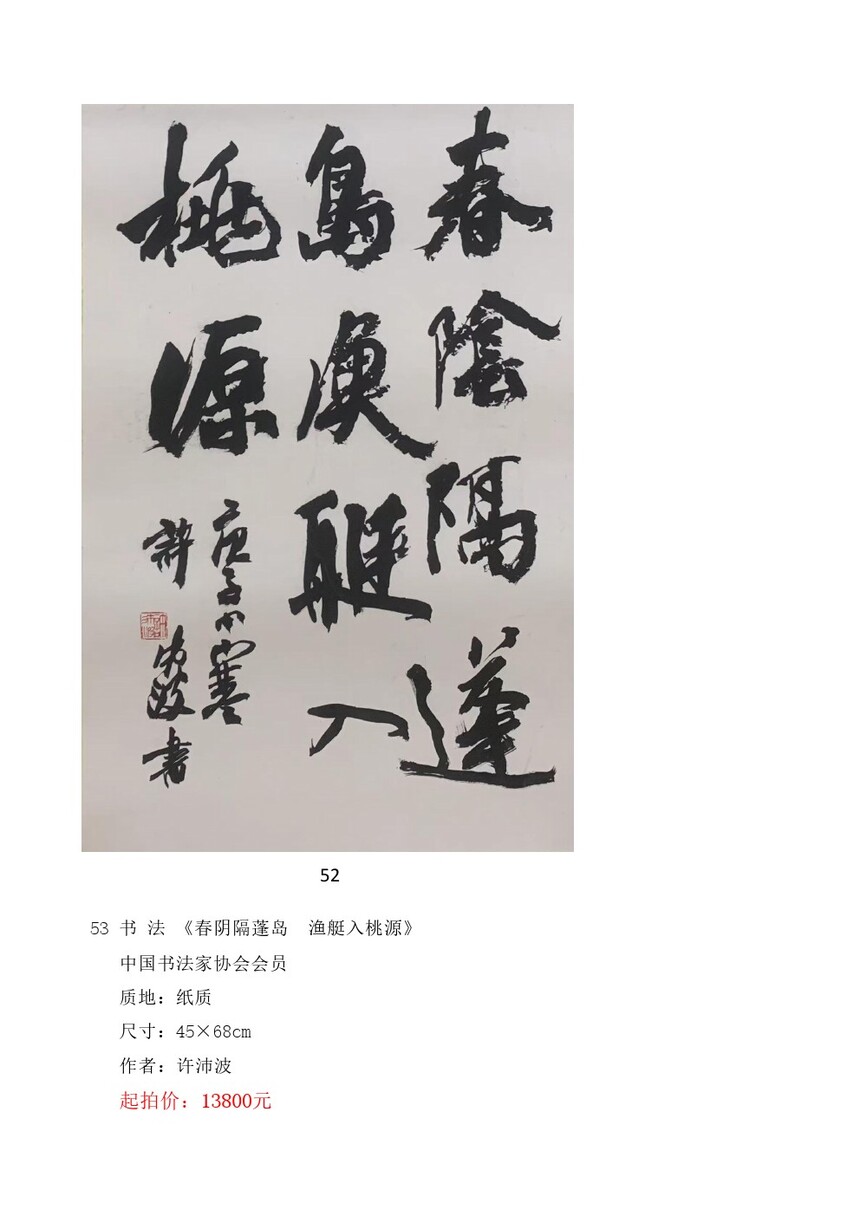 春陰隔蓬
島漁艇入
桃源
庚子小寒
許沛波書
52
53 书 法 《春阴隔蓬岛　渔艇入桃源》
中国书法家协会会员
质地：纸质
尺寸：45×68cm
作者：许沛波
起拍价：13800元